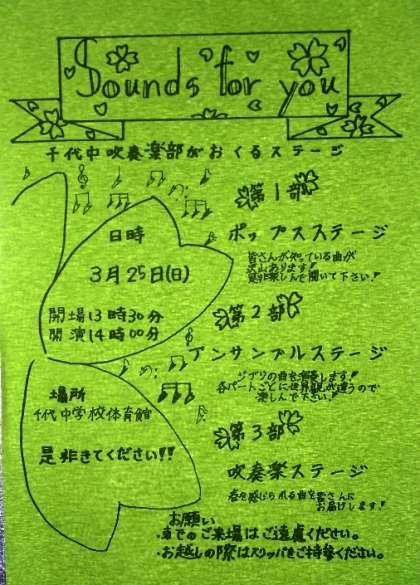 Sounds for you
千代中吹奏楽部がおくるステージ
日時
3月25日(日)
開場13時30分
開演14時00分
場所
千代中学校体育館
是非きてください!!
第1部
ポップスステージ
皆さんが知っている曲が
沢山あります!
是非楽しんで聞いて下さい!
第2部
アンサンブルステージ
ジブリの曲を演奏します!
各パートごとに世界観が違うので
楽しんで下さい!
第3部
吹奏楽ステージ
春を感じられる曲を皆さんに
お届けします!
お願い
・車でのご来場はご遠慮ください。
・お越しの際はスリッパをご持参ください。